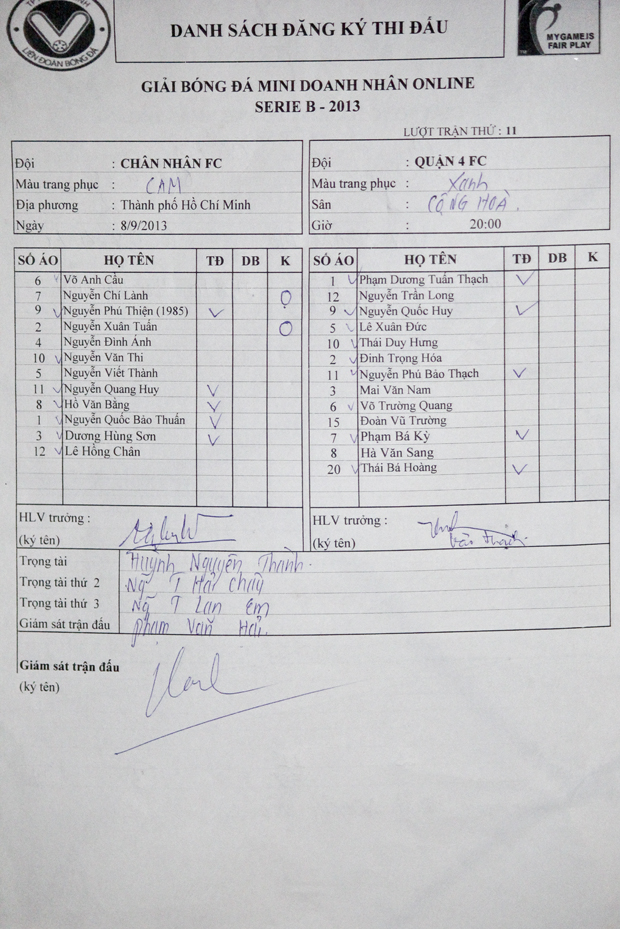 LIÊN ĐOÀN BÓNG ĐÁ
DANH SÁCH ĐĂNG KÝ THI ĐẤU
MYGAME.IS
FAIR PLAY
GIẢI BÓNG ĐÁ MINI DOANH NHÂN ONLINE
SERIE B - 2013
LƯỢT TRẬN THỨ : 11
Đội : CHÂN NHÂN FC
Màu trang phục : CAM
Địa phương : Thành phố Hồ Chí Minh
Ngày : 8/9/2013
Đội : QUẬN 4 FC
Màu trang phục : Xanh
Sân : CỘNG HOÀ.
Giờ 20:00
SỐ ÁO HỌ TÊN TĐ DB K
6 Võ Anh Cầu
7 Nguyễn Chí Lành
9 Nguyễn Phú Thiện (1985)
2 Nguyễn Xuân Tuấn
4 Nguyễn Đình Ánh
10 Nguyễn Văn Thi
5 Nguyễn Viết Thành
11 Nguyễn Quang Huy
8 Hồ Văn Bằng
1 Nguyễn Quốc Bảo Thuấn
3 Dương Hùng Sơn
12 Lê Hồng Chân
SỐ ÁO HỌ TÊN TĐ DB K
1 Phạm Dương Tuấn Thạch
12 Nguyễn Trần Long
9 Nguyễn Quốc Huy
5 Lê Xuân Đức
10 Thái Duy Hưng
2 Đinh Trọng Hóa
11 Nguyễn Phú Bảo Thạch
3 Mai Văn Nam
6 Võ Trường Quang
15 Đoàn Vũ Trường
7 Phạm Bá Kỳ
8 Hà Văn Sang
20 Thái Bá Hoàng
HLV trưởng :
(ký tên)
HLV trưởng :
(ký tên)
Trọng tài Huỳnh Nguyên Thành.
Trọng tài thứ 2 Ng T Hải Châу
Trọng tài thứ 3 Ng T Lan Em
Giám sát trận đấu Phạm Văn Hải.
Giám sát trận đấu
(ký tên)